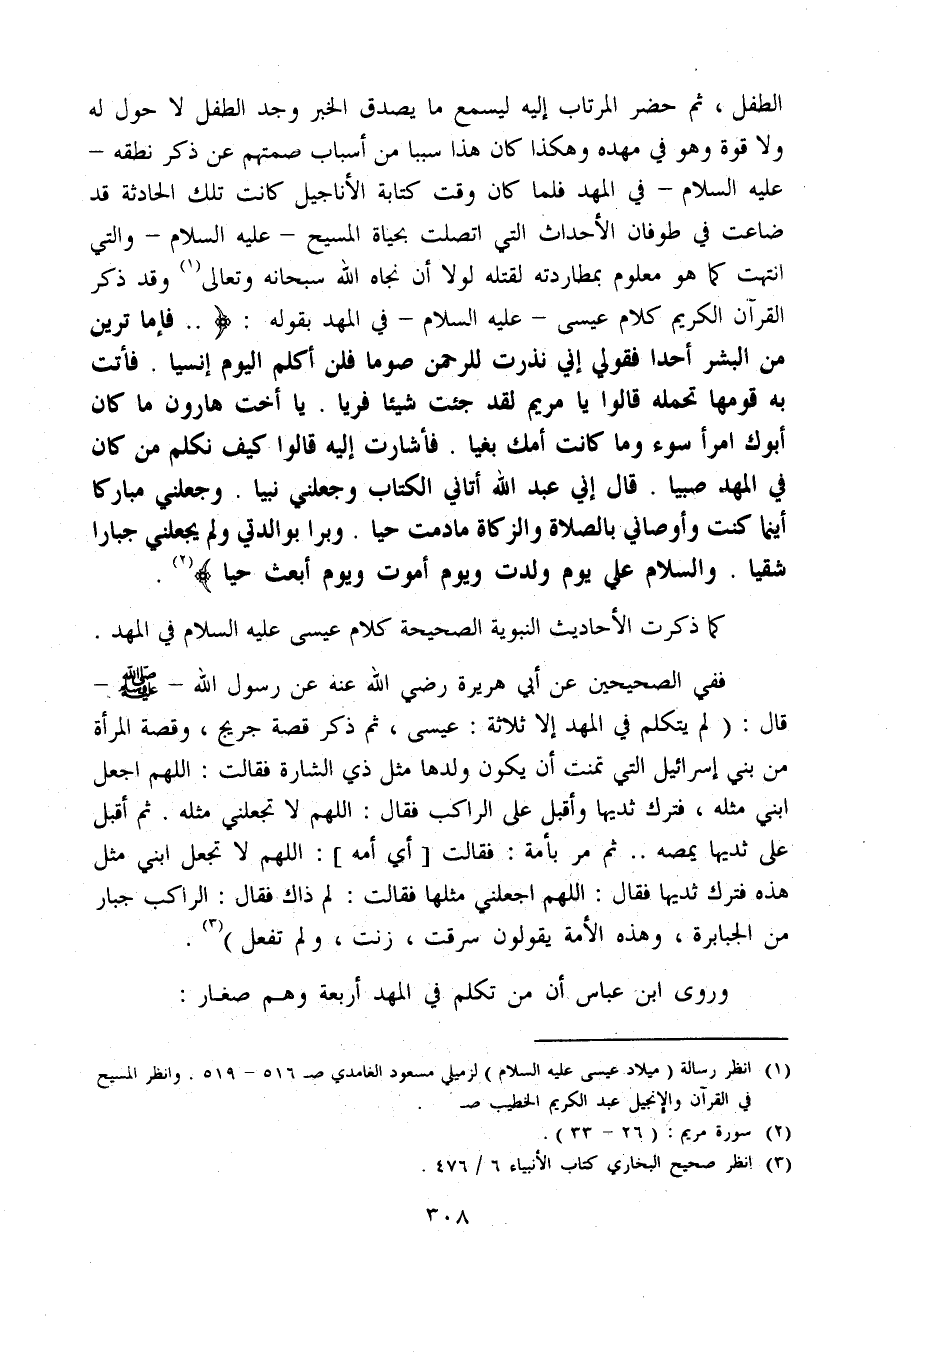 الطفل ، ثم حضر المرتاب إليه ليسمع ما يصدق الخبر وجد الطفل لا حول له
ولا قوة وهو في مهده وهكذا كان هذا سببا من أسباب صمتهم عن ذكر نطقه –
عليه السلام – في المهد فلما كان وقت كتابة الأناجيل كانت تلك الحادثة قد
ضاعت في طوفان الأحداث التي اتصلت بحياة المسيح – عليه السلام – والتي
انتهت كما هو معلوم بمطاردته لقتله لولا أن نجاه الله سبحانه وتعالى(١) وقد ذكر
القرآن الكريم كلام عيسى – عليه السلام – في المهد بقوله : ﴿ .. فإما ترين
من البشر أحدا فقولي إني نذرت للرحمن صوما فلن أكلم اليوم إنسيا . فأتت
به قومها تحمله قالوا يا مريم لقد جئت شيئا فريا . يا أخت هارون ما كان
أبوك امرأ سوء وما كانت أمك بغيا . فأشارت إليه قالوا كيف نكلم من كان
في المهد صبيا . قال إني عبد الله أتاني الكتاب وجعلني نبيا . وجعلني مباركا
أينما كنت وأوصاني بالصلاة والزكاة مادمت حيا . وبرا بوالدتي ولم يجعلني جبارا
شقيا . والسلام علي يوم ولدت ويوم أموت ويوم أبعث حيا ﴾(٢) .
كما ذكرت الأحاديث النبوية الصحيحة كلام عيسى عليه السلام في المهد .
ففي الصحيحين عن أبي هريرة رضي الله عنه عن رسول الله – ﷺ –
قال : ( لم يتكلم في المهد إلا ثلاثة : عيسى ، ثم ذكر قصة جريج ، وقصة المرأة
من بني إسرائيل التي تمنت أن يكون ولدها مثل ذي الشارة فقالت : اللهم اجعل
ابني مثله ، فترك ثديها وأقبل على الراكب فقال : اللهم لا تجعلني مثله . ثم أقبل
على ثديها يمصه .. ثم مر بأمة : فقالت [ أي أمه ] : اللهم لا تجعل ابني مثل
هذه فترك ثديها فقال : اللهم اجعلني مثلها فقالت : لم ذاك فقال : الراكب جبار
من الجبابرة ، وهذه الأمة يقولون سرقت ، زنت ، ولم تفعل )(٣) .
وروى ابن عباس أن من تكلم في المهد أربعة وهم صغار :
(١) انظر رسالة ( ميلاد عيسى عليه السلام ) لزميلي مسعود الغامدي صـ ٥١٦ – ٥١٩ . وانظر المسيح
في القرآن والإنجيل عبد الكريم الخطيب صـ .
(٢) سورة مريم : ( ٢٦ – ٣٣ ) .
(٣) انظر صحيح البخاري كتاب الأنبياء ٦ / ٤٧٦ .
٣٠٨